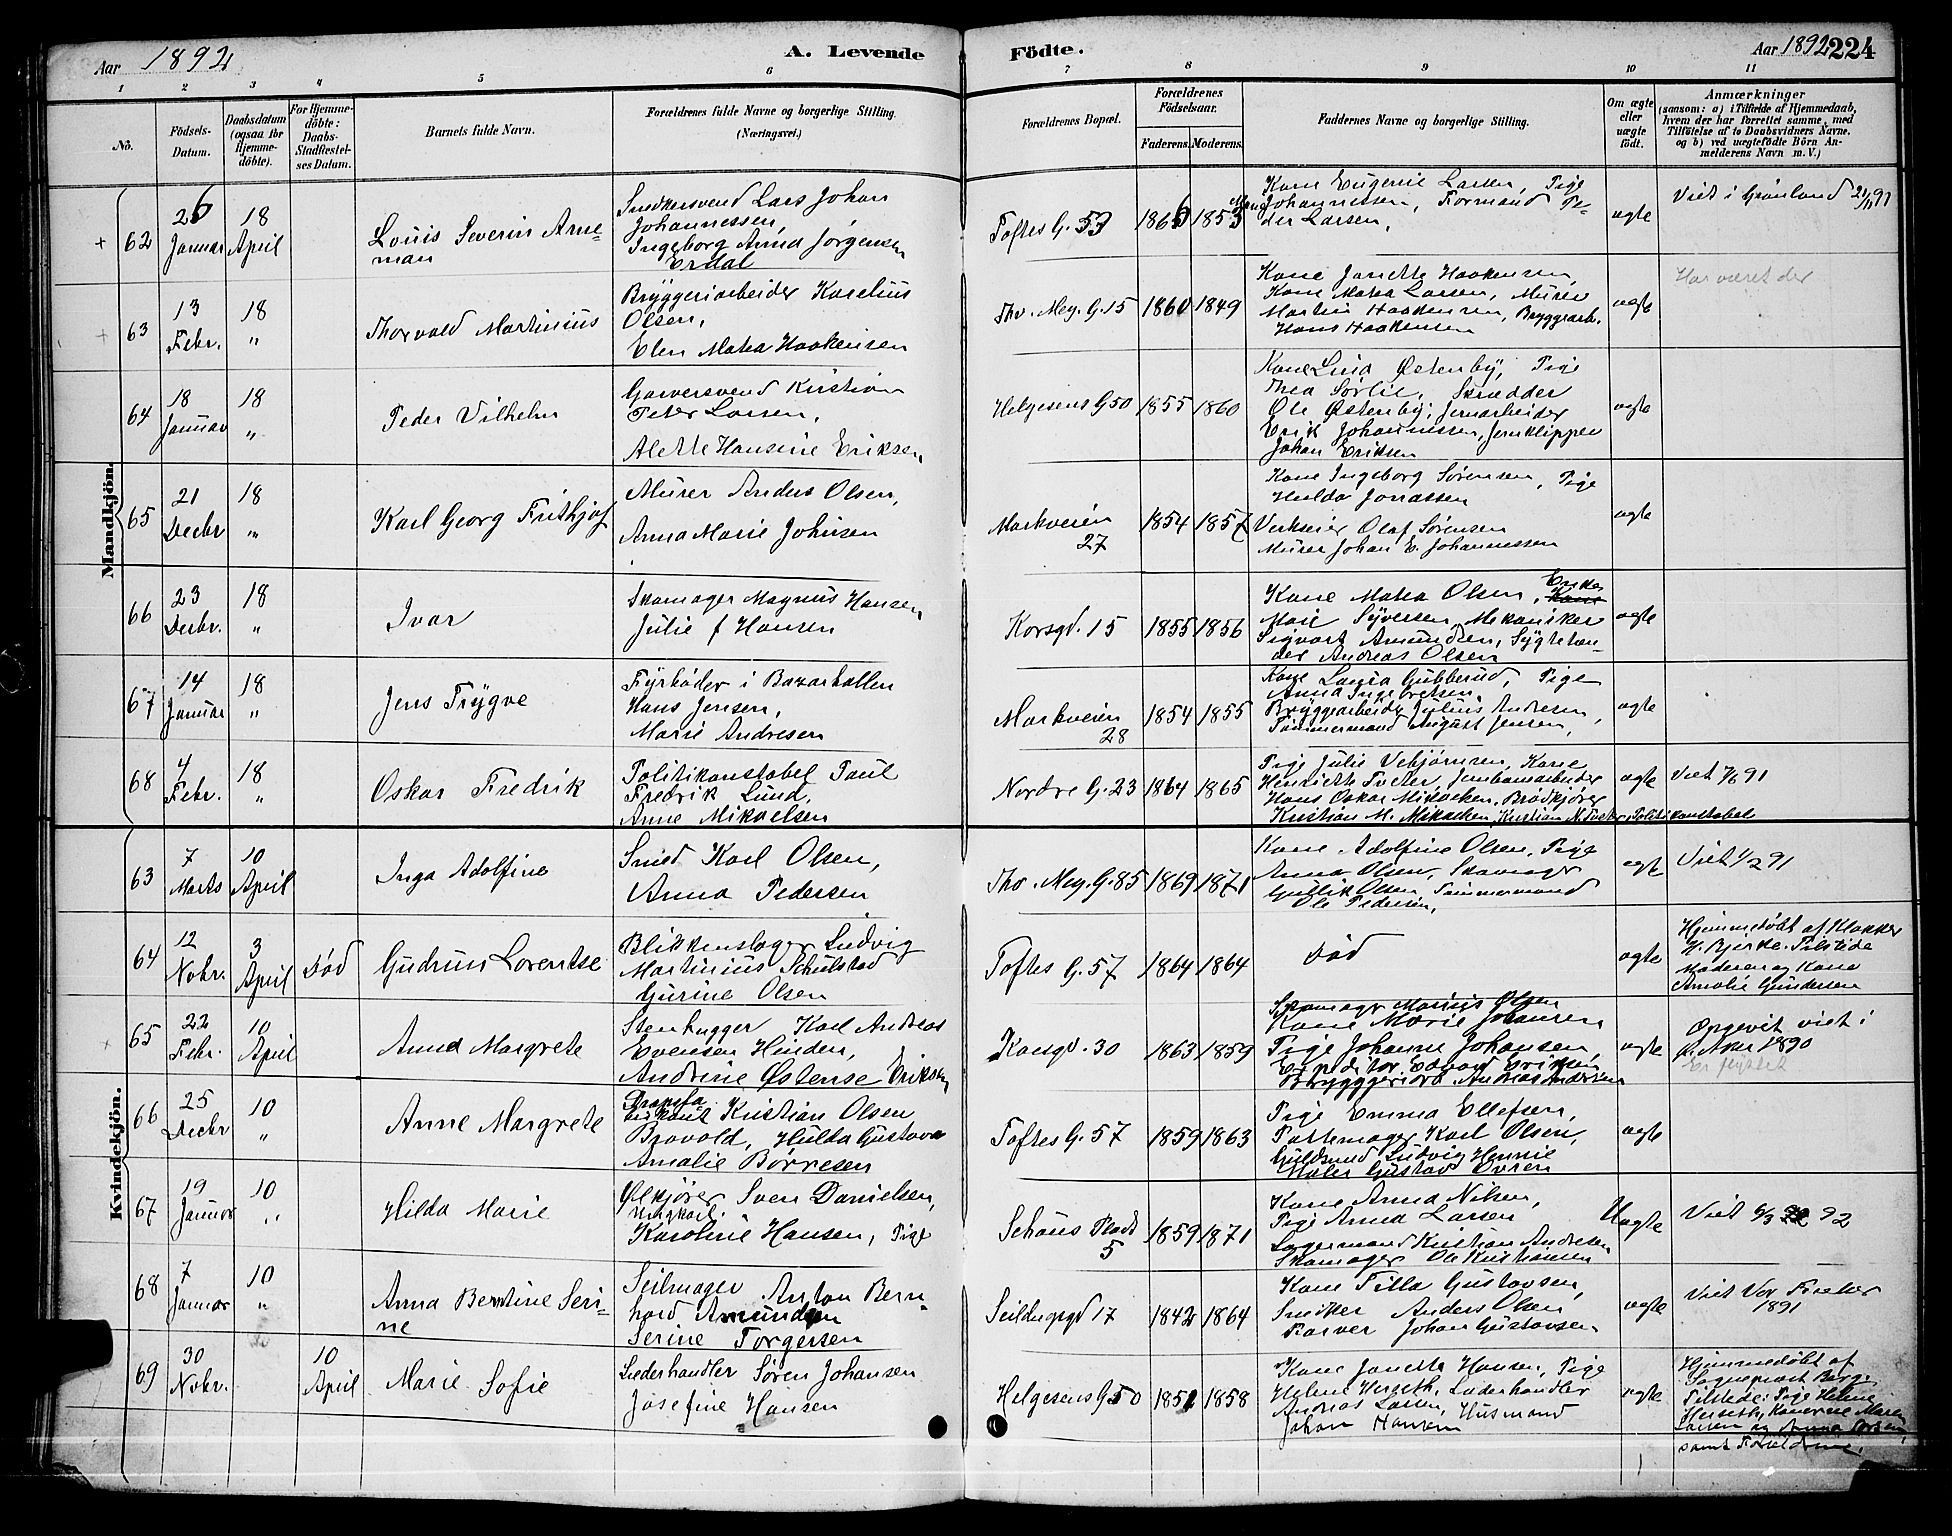 Aar 1892 A. Levende Födte. Aar 1892 224
1 2 3 4 5 6 7 8 9 10 11
No.
Födsels-Datum.
Daabsdatum (ogsaa for Hjemmedöbte).
For Hjemmedöbte: Daabs-Stadfæstelses Datum.
Barnets fulde Navn.
Forældrenes fulde Navne og borgerlige Stilling. (Næringsvei.)
Forældrenes Bopæl.
Forældrenes Födselsaar.
Faderens. Moderens.
Faddernes Navne og borgerlige Stilling.
Om ægte eller uægte født.
Anmærkninger
(saasom: a) i Tilfælde af Hjemmedaab,
hvem der har forrettet samme, med
Tilföielse af to Daabsvidners Navne,
og b) ved uægtefödte Börn Anmelderens Navn m. V.)
Mandkjön.
+ 62
26 Januar
18 April
Louis Severin Arne-
man
Snedkersvend Lars Johan
Johannessen,
Ingeborg Anna Jørgensen
Erdal
Toftes G. 53
1866 1853
Kone Eugenie Larsen, Pige
Johannessen, Formand Pe-
der Larsen,
ægte
Viet i Grønland
+ 63
13 Febr.
18 "
Thorvald Martinius
Bryggeriarbeider Karelius
Olsen,
Elen Mathea Haakensen
Thv. Mey. G. 15
1860 1849
Kone Janette Haakensen,
Kone Mathea Larsen, Murer
Martin Haakensen, Bryggearb.
Hans Haakensen
ægte
Har været der
64
18 Januar
18 "
Peder Vilhelm
Garversvend Kristian
Peter Larsen,
Alette Hansine Eriksen
Helgesens G 50
1855 1860
Kone Lina Østenby, Pige
Thea Sørlie, Skrædder
Ole Østenby, Jernarbeider
Erik Johannessen, Jernklipper
Johan Eriksen
ægte
65
21 Decbr
18 "
Karl Georg Frithjof
Murer Anders Olsen,
Anna Marie Johnsen
Markveien
27
1854 1857
Kone Ingeborg Sørensen, Pige
Hulda Jonassen
Verkseier Olaf Sørensen
Murer Johan E. Johannessen
ægte
66
23 Decbr.
18 "
Ivar
Skomager Magnus Hansen
Julie f Hansen
Korsgd. 15
1855 1856
Kone Mathea Olsen, Enke
Marie Syversen, Mekaniker
Sigvart Amundsen, Lygteten-
der Andreas Olsen
ægte
67
14 Januar
18 "
Jens Trygve
Fyrbøder i Bazarhallen
Hans Jensen,
Marie Andresen
Markveien
28
1854 1855
Kone Laura Gubberud, Pige
Anna Ingebretsen,
Bryggearbeider Julius Andresen,
Tømmermand August Jensen,
ægte
68
4 Febr.
18 "
Oskar Fredrik
Politikonstabel Paul
Fredrik Lund,
Anne Mikaelsen
Nordre G. 23
1864 1865
Pige Julie Vebjørnsen, Kone
Henriette Tveter, Jernbanearbeider
Hans Oskar Mikaelsen, Brødkjører
Kristian M. Mikaelsen, Kristian N. Tveter, Politikonstabel
ægte
Viet 7/6 91
Kvindekjön.
63
7 Marts
10 April
Inga Adolfine
Smed Karl Olsen,
Anna Pedersen
Thv. Mey. G. 85
1869 1871
Kone Adolfine Olsen, Pige
Anna Olsen, Skomager
Gullik Olsen, Tømmermand
Ole Pedersen,
ægte
Viet 1/2 91
64
12 Nobr.
3 April
Død
Gudrun Lorentse
Blikkenslager Ludvig
Martinius Schulstad
Gurine Olsen
Toftes G. 57
1864 1864
Død
ægte
Hjemmedøbt af Klokker
H. Bjerke. Tilstede
Moderen og Kone
Amalie Gundersen
+ 65
22 Febr.
10 April
Anna Margrete
Stenhugger Karl Andreas
Evensen Hinden,
Andrine Østense Eriksen
Korsgd. 30
1863 1859
Skomager Marius Olsen
Kone Marie Johansen
Pige Johanne Johansen,
Expeditør Edvard Eriksen
Bryggeriarb. Andreas Andersen
ægte
Opgevit viet i
V. Aker 1890
66
25 Decbr
10 "
Anne Margrete
Kristian Olsen
Brovold, Hulda Gustava
Amalie Børresen
Toftes G. 57
1859 1863
Pige Emma Ellefsen,
Pottemager Karl Olsen,
Guldsmed Ludvig Hennie
Maler Gustav Ovren
ægte
67
19 Januar
10 "
Hilda Marie
Ølkjører Sven Danielsen,
Ungkarl.
Karoline Hansen, Pige
Schous Plads
5
1859 1871
Kone Anna Nilsen,
Pige Anna Larsen
Lagermand Kristian Andresen
Skomager Ole Kristiansen
Uægte
Viet 6/3 92
68
7 Januar
10 "
Anna Bentine Seri-
ne
Seilmager Anton Bern-
hard Amundsen
Serine Torgersen
Seildugsgd 17
1842 1864
Kone Tilla Gustavsen,
Snedker Anders Olsen
Farver Johan Gustavsen
ægte
Viet Vor Frelser
1891
69
30 Nobr.
10 April
Marie Sofie
Læderhandler Søren Johansen
Josefine Hansen
Helgesens G 50
1851 1858
Kone Janette Hansen, Pige
Helene Herseth, Læderhandler
Andreas Larsen, Husmand
Johan Hansen
ægte
Hjemmedøbt af
Sogneprest Berg.
Tilstede: Pige Helene
Herseth, Konerne Maren
Larsen og Anna Larsen,
samt Forældrene.